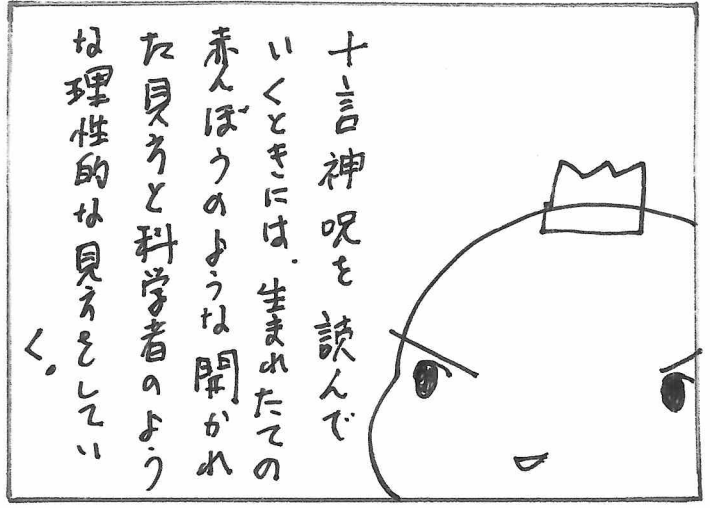 十言神呪を読んで
いくときには、生まれたての
赤んぼうのような開かれ
た見方と科学者のよう
な理性的な見方をしてい
く。